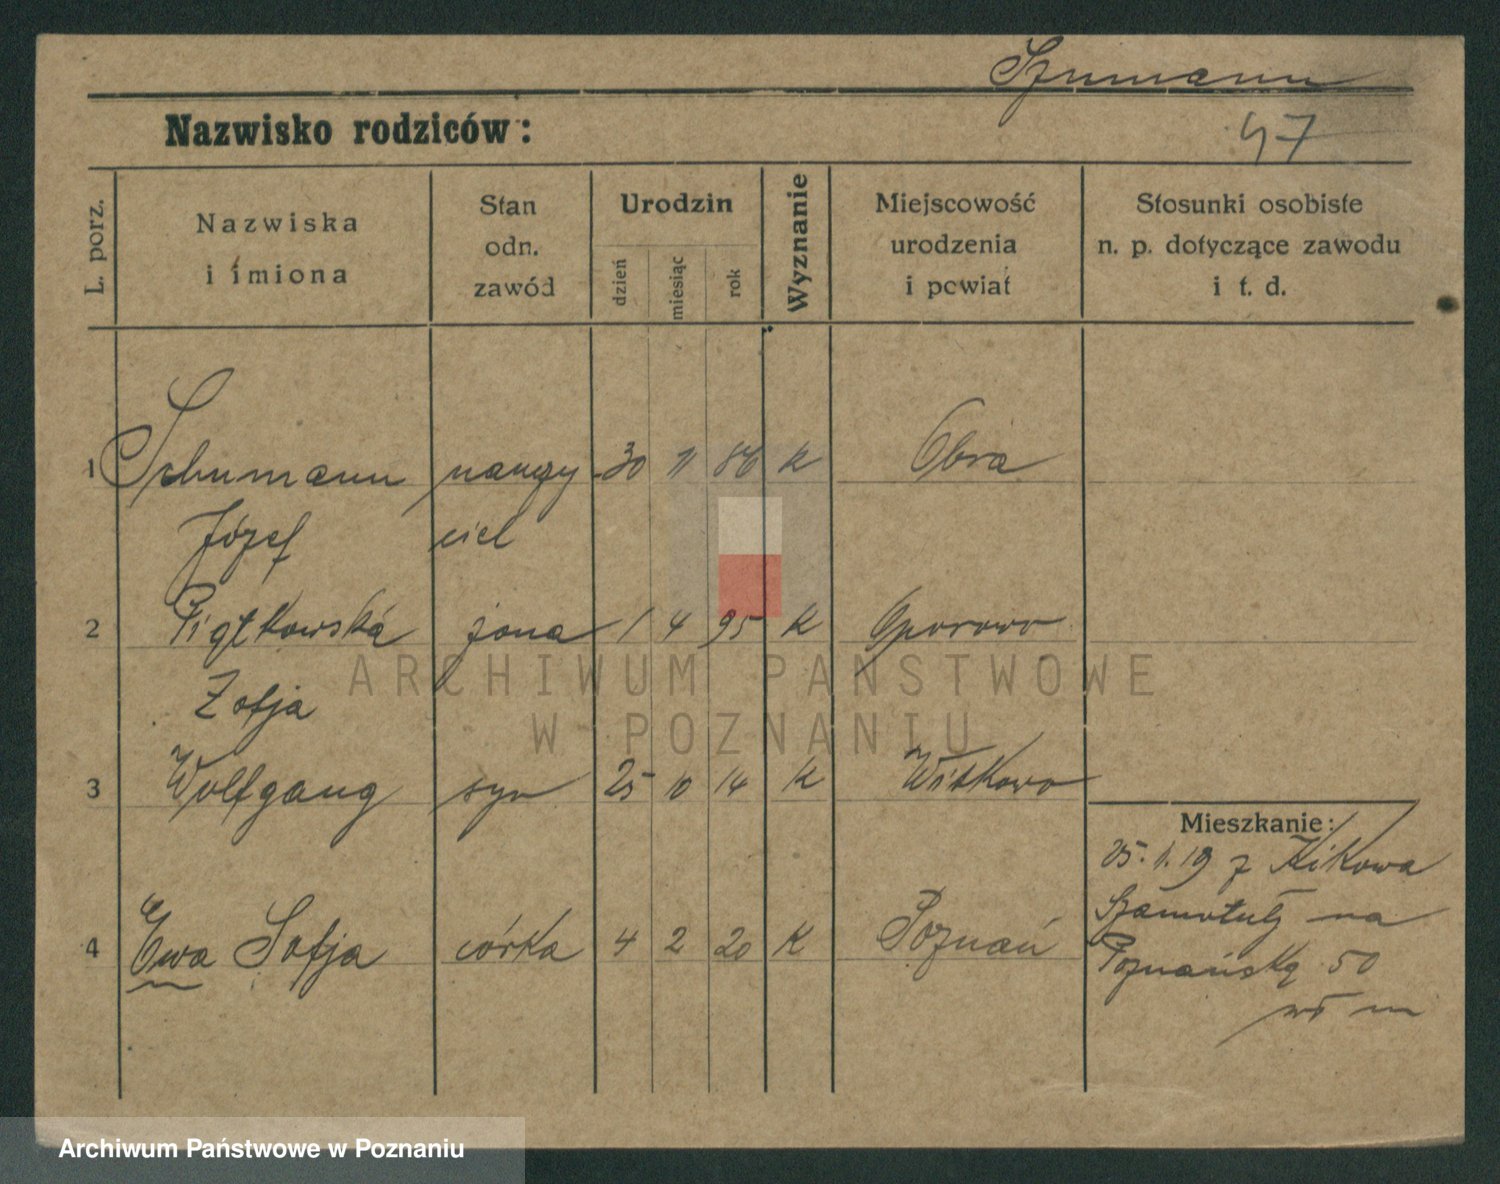 Szumann
Nazwisko rodziców:
47
L. porz.
Nazwiska
i imiona
Stan
odn.
zawód
Urodzin
dzień
miesiąc
rok
Wyznanie
Miejscowość
urodzenia
i powiat
Stosunki osobiste
n. p. dotyczące zawodu
i t. d.
1 Schumann nauczy 30 11 86 K Obra
Józef ciel
2 Piątkowska żona 1 4 95 K Oporowo
Zofja
ARCHIWUM PAŃSTWOWE
W POZNANIU
3 Wolfgang syn 25 10 14 K Witkowo
Mieszkanie:
25.1.19 z Kikowa
Szamotuły na
4 Ewa Sofja córka 4 2 20 K Poznań
Poznańską 50
Archiwum Państwowe w Poznaniu